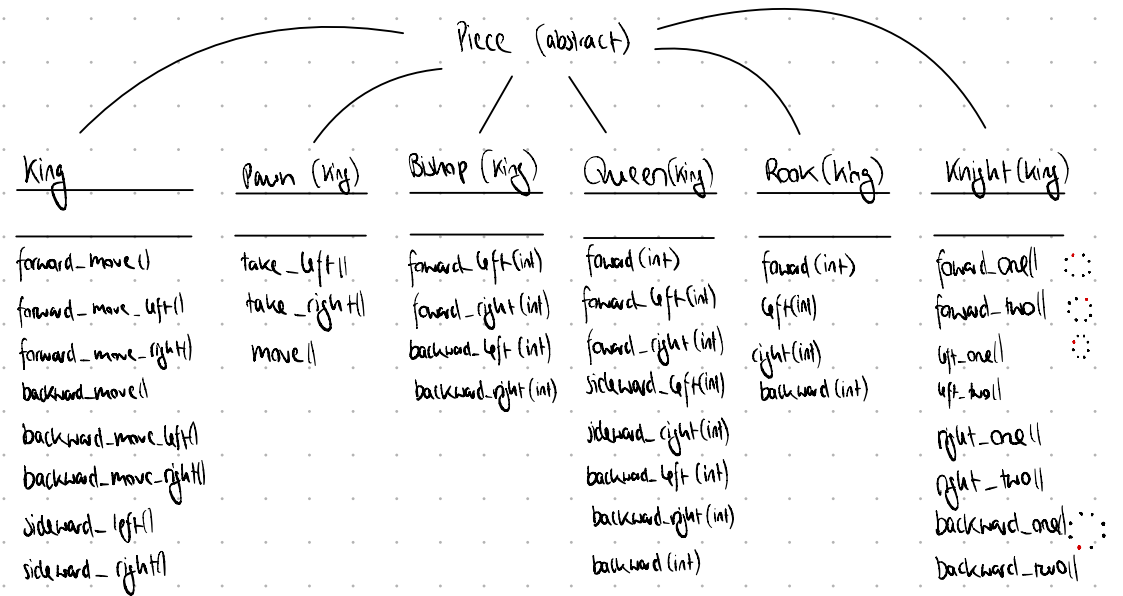 Piece (abstract)
King
forward_move()
forward_move_left()
forward_move_right()
backward_move()
backward_move_left()
backward_move_right()
sideward_left()
sideward_right()
Pawn (King)
take_left()
take_right()
move()
Bishop (King)
foward_left(int)
foward_right(int)
backward_left (int)
backward_right(int)
Queen(King)
foward(int)
forward_left(int)
foward_right(int)
sideward_left(int)
sideward_right(int)
backward_left (int)
backward_right(int)
backward(int)
Rook(King)
foward(int)
left(int)
right(int)
backward(int)
Knight(King)
foward_one()
foward_two()
left_one()
left_two()
right_one()
right_two()
backward_one()
backward_two()